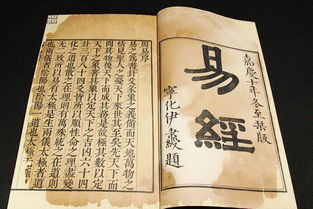 嘉慶十年冬至栞版
易經
寧化伊秉綬題
周易序
易之為書卦爻彖象之義備而天地萬物之
情見聖人之憂天下來世其至矣先天下而
開其物後天下而成其務是故極其數以定
天下之象著其象以定天下之吉凶六十四
卦三百八十四爻皆所以順性命之理盡變
化之道也散之在理則有萬殊統之在道則
无二致所以易有太極是生兩儀太極者道
也兩儀者陰陽也陰陽一道也太極无極也